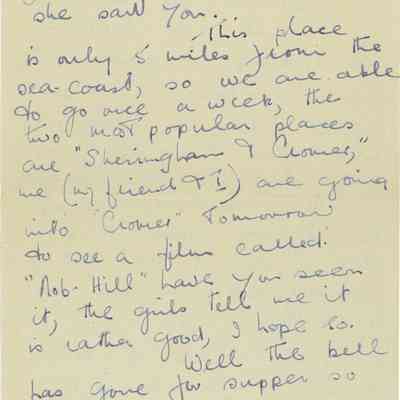 she said you.
This place
is only 5 miles from the
sea-coast, so we are able
to go once a week, the
two most popular places
are "Sheringham & Cromer,"
we (my friend & I) are going
into "Cromer" Tomorrow
to see a film called.
"Nob-Hill" have you seen
it, the girls tell me it
is rather good, I hope so.
Well the bell
has gone for supper so